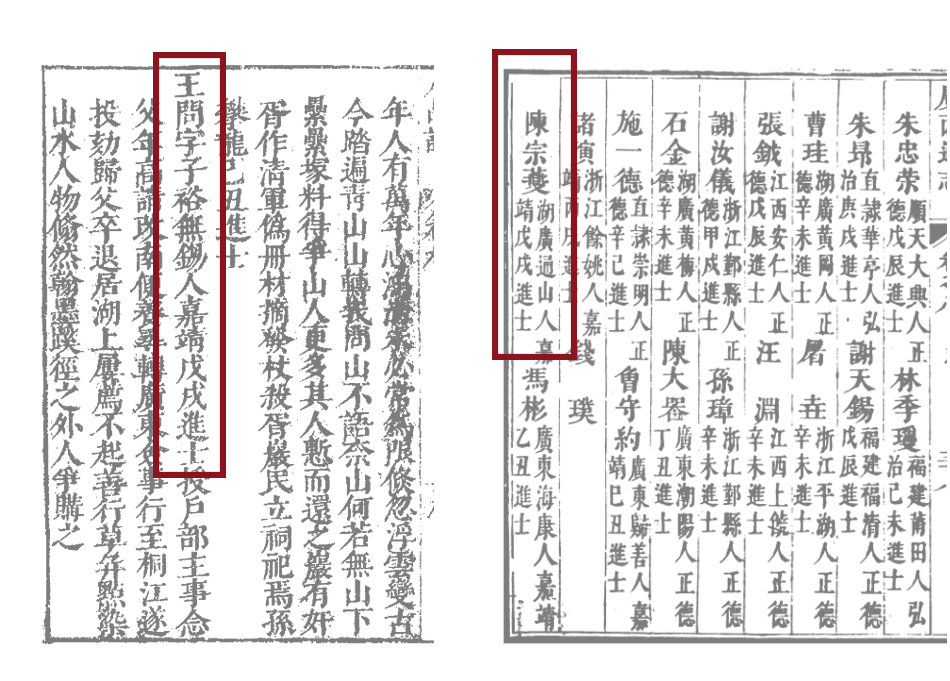 年人有萬年心必常為限倏忽浮雲變古
今踏遍青山山轉我問山不語奈山何若無山下
纍纍塚料得爭山人更多其人慚而還之巖有奸
胥作清軍偽冊材摘發杖殺胥巖民立祠祀焉孫
龍己丑進士
王問字子裕無錫人嘉靖戊戌進士授戶部主事僉
父年高請改南便養尋轉廣東僉事行至桐江遂
投劾歸父卒退居湖上屢薦不起善行草并點染
山水人物翛然翰墨蹊徑之外人爭購之
朱忠 順天大興人正德戊辰進士 林季瓊 福建莆田人弘治己未進士
朱昴 直隸華亭人弘治庚戌進士 謝天錫 福建福清人正德戊辰進士
曹珪 湖廣黃岡人正德辛未進士 屠垚 浙江平湖人正德辛未進士
張鉞 江西安仁人正德戊辰進士 汪淵 江西上饒人正德辛未進士
謝汝儀 浙江鄞縣人正德甲戌進士 孫璋 浙江鄞縣人正德辛未進士
石金 湖廣黃梅人正德辛未進士 陳大器 廣東潮陽人正德丁丑進士
施一德 直隸崇明人正德辛巳進士 魯守約 廣東歸善人嘉靖己丑進士
諸寅 浙江餘姚人嘉靖丙戌進士 錢璞
陳宗夔 湖廣通山人嘉靖戊戌進士 馮彬 廣東海康人嘉靖乙丑進士